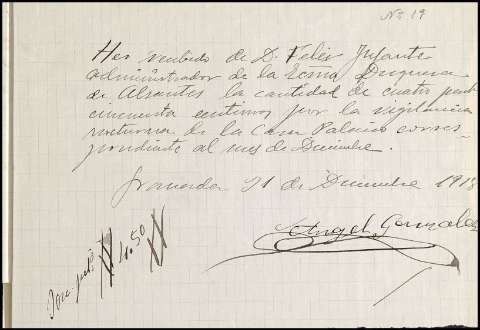 No. 19
He recibido de D. Felix Infante
administrador de la Excma Duquesa
de Abrantes la cantidad de cuatro pests
cincuenta centimos por la vigilancia
nocturna de la Casa Palacio corres-
pondiente al mes de Diciembre.
Granada 31 de Diciembre 1918
Angel Gonzalez
Son pts # 4.50 #